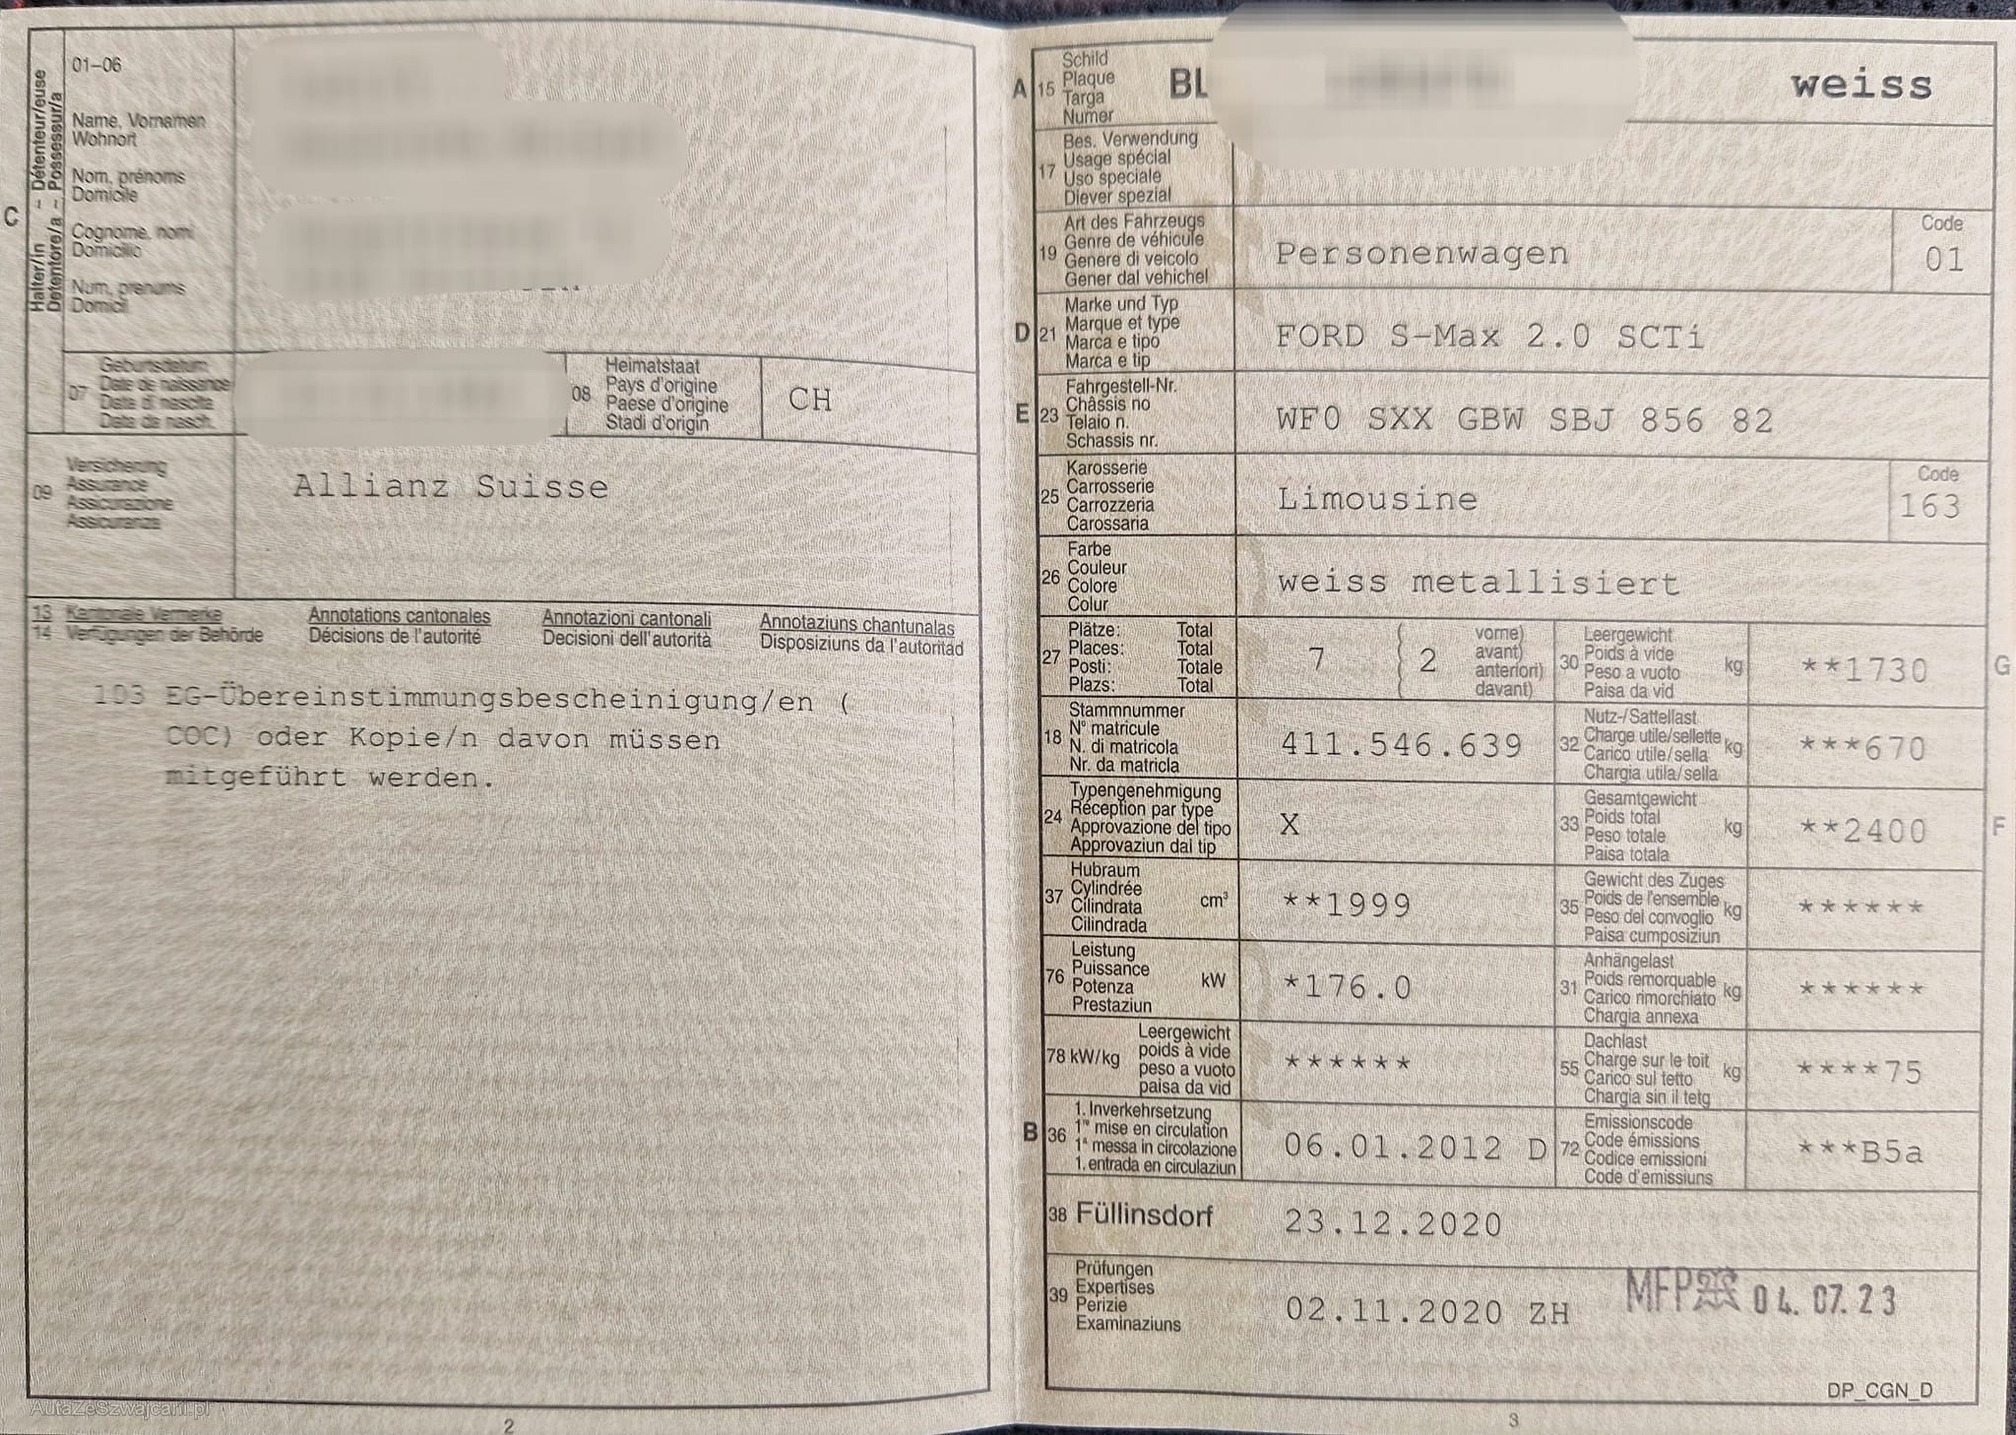 C
Halter/in – Détenteur/euse
Detentore/a – Possessur/a
01–06
Name, Vornamen
Wohnort
Nom, prénoms
Domicile
Cognome, nomi
Domicilio
Num, prenums
Domicil
07
Geburtsdatum
Date de naissance
Data di nascita
Data da nasch.
08
Heimatstaat
Pays d'origine
Paese d'origine
Stadi d'origin
CH
09
Versicherung
Assurance
Assicurazione
Assicuranza
Allianz Suisse
13 Kantonale Vermerke Annotations cantonales Annotazioni cantonali Annotaziuns chantunalas
14 Verfügungen der Behörde Décisions de l'autorité Decisioni dell'autorità Disposiziuns da l'autoritad
103 EG-Übereinstimmungsbescheinigung/en (
COC) oder Kopie/n davon müssen
mitgeführt werden.
AutaZeSzwajcarii.pl
2
A 15
Schild
Plaque
Targa
Numer
BL
weiss
17
Bes. Verwendung
Usage spécial
Uso speciale
Diever spezial
19
Art des Fahrzeugs
Genre de véhicule
Genere di veicolo
Gener dal vehichel
Personenwagen
Code
01
D 21
Marke und Typ
Marque et type
Marca e tipo
Marca e tip
FORD S-Max 2.0 SCTi
E 23
Fahrgestell-Nr.
Châssis no
Telaio n.
Schassis nr.
WF0 SXX GBW SBJ 856 82
25
Karosserie
Carrosserie
Carrozzeria
Carossaria
Limousine
Code
163
26
Farbe
Couleur
Colore
Colur
weiss metallisiert
27
Plätze: Total
Places: Total
Posti: Totale
Plazs: Total
7 { 2
vorne)
avant)
anteriori)
davant)
30
Leergewicht
Poids à vide
Peso a vuoto
Paisa da vid
kg
**1730
G
18
Stammnummer
N° matricule
N. di matricola
Nr. da matricla
411.546.639
32
Nutz-/Sattellast
Charge utile/sellette
Carico utile/sella
Chargia utila/sella
kg
***670
24
Typengenehmigung
Réception par type
Approvazione del tipo
Approvaziun dal tip
X
33
Gesamtgewicht
Poids total
Peso totale
Paisa totala
kg
**2400
F
37
Hubraum
Cylindrée
Cilindrata
Cilindrada
cm³
**1999
35
Gewicht des Zuges
Poids de l'ensemble
Peso del convoglio
Paisa cumposiziun
kg
******
76
Leistung
Puissance
Potenza
Prestaziun
kW
*176.0
31
Anhängelast
Poids remorquable
Carico rimorchiato
Chargia annexa
kg
******
78 kW/kg
Leergewicht
poids à vide
peso a vuoto
paisa da vid
******
55
Dachlast
Charge sur le toit
Carico sul tetto
Chargia sin il tetg
kg
****75
B 36
1. Inverkehrsetzung
1re mise en circulation
1a messa in circolazione
1. entrada en circulaziun
06.01.2012 D
72
Emissionscode
Code émissions
Codice emissioni
Code d'emissiuns
***B5a
38 Füllinsdorf
23.12.2020
39
Prüfungen
Expertises
Perizie
Examinaziuns
02.11.2020 ZH
MFP 04. 07. 23
DP_CGN_D
3